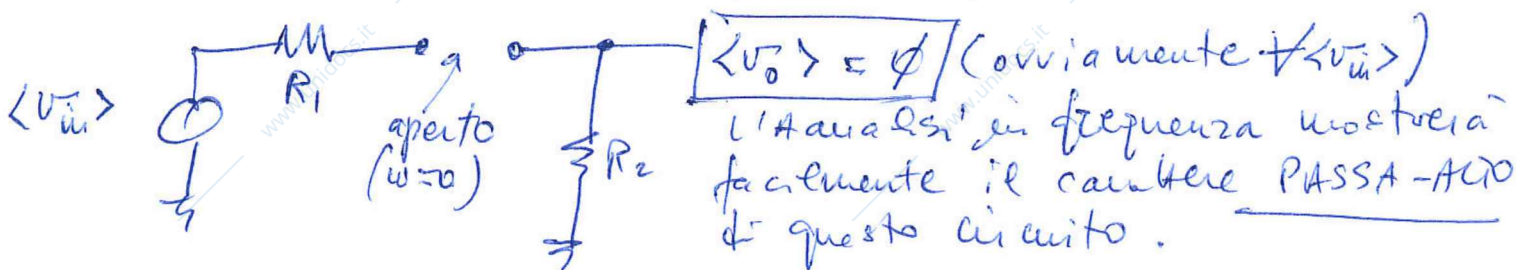 <v_in>
R₁
aperto
(ω=0)
R₂
<v_o> = ∅ (ovviamente ∀<v_in>)
L'Analisi in frequenza mostrerà
facilmente il carattere PASSA-ALTO
di questo circuito.
www.unidocs.it
www.unidocs.it